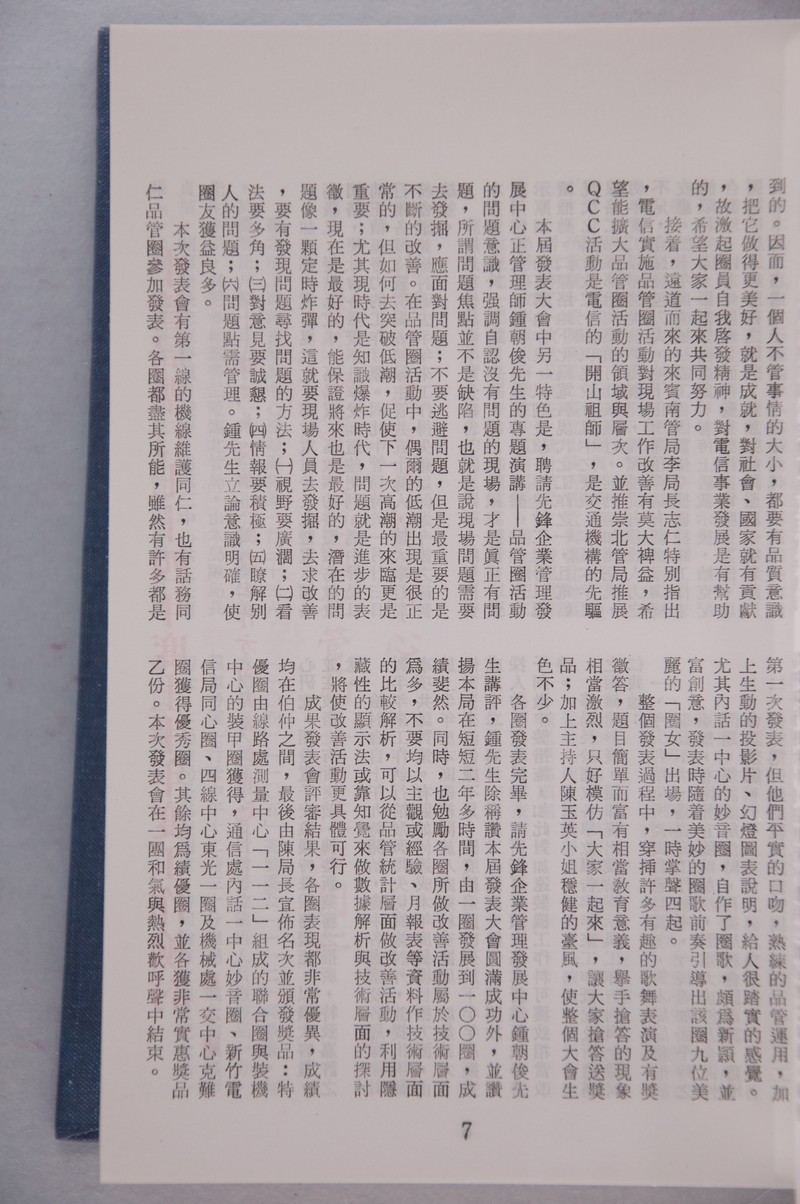 到的。因而，一個人不管事情的大小，都要有品質意識
，把它做得更美好，就是成就，對社會、國家就有貢獻
，故激起圈員自我啓發精神，對電信事業發展是有幫助
的，希望大家一起來共同努力。
接着，遠道而來的來賓南管局李局長志仁特別指出
，電信實施品管圈活動對現場工作改善有莫大裨益，希
望能擴大品管圈活動的領域與層次。並推崇北管局推展
QCC活動是電信的「開山祖師」，是交通機構的先驅
。
本屆發表大會中另一特色是，聘請先鋒企業管理發
展中心正管理師鍾朝俊先生的專題演講——品管圈活動
的問題意識，强調自認沒有問題的現場，才是眞正有問
題，所謂問題焦點並不是缺陷，也就是說現場問題需要
去發掘，應面對問題；不要逃避問題，但是最重要的是
不斷的改善。在品管圈活動中，偶爾的低潮出現是很正
常的，但如何去突破低潮，促使下一次高潮的來臨更是
重要；尤其現時代是知識爆炸時代，問題就是進步的表
徵，現在是最好的，能保證將來也是最好的，潛在的問
題像一顆定時炸彈，這就要現場人員去發掘，去求改善
，要有發現問題尋找問題的方法；㈠視野要廣濶；㈡看
法要多角；㈢對意見要誠懇；㈣情報要積極；㈤瞭解別
人的問題；㈥問題點需管理。鍾先生立論意識明確，使
圈友獲益良多。
本次發表會有第一線的機線維護同仁，也有話務同
仁品管圈參加發表。各圈都盡其所能，雖然有許多都是
第一次發表，但他們平實的口吻，熟練的品管運用，加
上生動的投影片、幻燈圖表說明，給人很踏實的感覺。
尤其內話一中心的妙音圈，自作了圈歌，頗爲新穎，並
富創意，發表時隨着美妙的圈歌前奏引導出該圈九位美
麗的「圈女」出場，一時掌聲四起。
整個發表過程中，穿揷許多有趣的歌舞表演及有獎
徵答，題目簡單而富有相當敎育意義，擧手搶答的現象
相當激烈，只好模仿「大家一起來」，讓大家搶答送獎
品；加上主持人陳玉英小姐穩健的臺風，使整個大會生
色不少。
各圈發表完畢，請先鋒企業管理發展中心鍾朝俊先
生講評，鍾先生除稱讚本屆發表大會圓滿成功外，並讚
揚本局在短短二年多時間，由一圈發展到一〇〇圈，成
績斐然。同時，也勉勵各圈所做改善活動屬於技術層面
爲多，不要均以主觀或經驗、月報表等資料作技術層面
的比較解析，可以從品管統計層面做改善活動，利用隱
藏性的顯示法或靠知覺來做數據解析與技術層面的探討
，將使改善活動更具體可行。
成果發表會評審結果，各圈表現都非常優異，成績
均在伯仲之間，最後由陳局長宣佈名次並頒發獎品：特
優圈由線路處測量中心「一一二」組成的聯合圈與裝機
中心的裝甲圈獲得，通信處內話一中心妙音圈、新竹電
信局同心圈、四線中心東光一圈及機械處一交中心克難
圈獲得優秀圈。其餘均爲績優圈，並各獲非常實惠獎品
乙份。本次發表會在一團和氣與熱烈歡呼聲中結束。
7